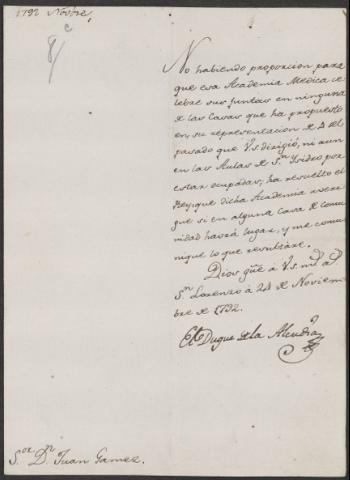 1792 Novbre,
c
8/
No habiendo proporcion para
que esa Academia Medica ce
lebre sus Juntas en ninguna
de las Casas que ha propuesto
en su representacion de 4 del
pasado que V.S. dirigió, ni aun
en las Aulas de Sn. Isidro por
estar ocupadas; ha resuelto el
Rey, que dicha Academia
gue si en alguna Casa de Comu
nidad havrá lugar, y me comu
nique lo que resultare.
Dios gue. á V.S. ms. as.
Sn. Lorenzo á 24 de Noviem
bre de 1792.
El Duque de la Alcudia
Sor. Dn. Juan Gamez.